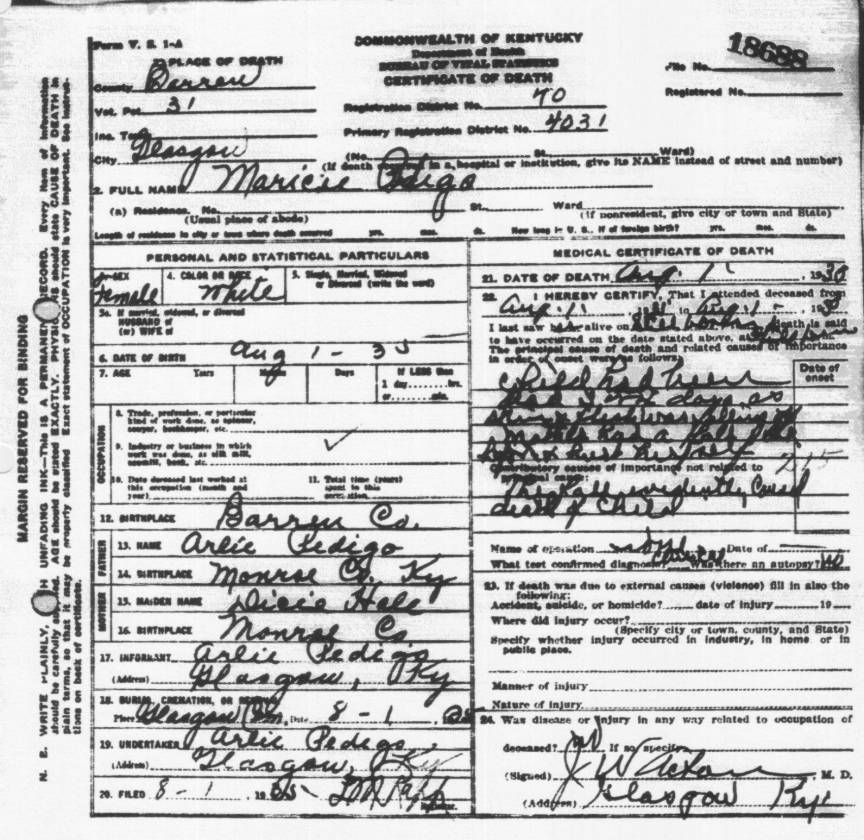 Form V. S. 1-A
COMMONWEALTH OF KENTUCKY
Department of Health
BUREAU OF VITAL STATISTICS
CERTIFICATE OF DEATH
18688
File No.
Registered No.
PLACE OF DEATH
County Barren
Vot. Pct. 31
Inc. Town
City Glasgow
Registration District No. 70
Primary Registration District No. 4031
(No. St. Ward)
(If death in a hospital or institution, give its NAME instead of street and number)
2. FULL NAME Maricie Pedigo
(a) Residence. No. St. Ward
(Usual place of abode) (If nonresident, give city or town and State)
Length of residence in city or town where death occurred yrs. mos. ds. How long in U. S., if of foreign birth? yrs. mos. ds.
PERSONAL AND STATISTICAL PARTICULARS
SEX Female
4. COLOR OR RACE White
5. Single, Married, Widowed or Divorced (write the word)
5a. If married, widowed, or divorced
HUSBAND of
(or) WIFE of
6. DATE OF BIRTH Aug 1 - 35
7. AGE Years Months Days If LESS than
1 day hrs.
or min.
OCCUPATION
8. Trade, profession, or particular
kind of work done, as spinner,
sawyer, bookkeeper, etc.
9. Industry or business in which
work was done, as silk mill,
sawmill, bank, etc.
10. Date deceased last worked at
this occupation (month and
year)
11. Total time (years)
spent in this
occupation.
12. BIRTHPLACE Barren Co.
FATHER
13. NAME Arlie Pedigo
14. BIRTHPLACE Monroe Co. Ky
MOTHER
15. MAIDEN NAME Dicie Hale
16. BIRTHPLACE Monroe Co
17. INFORMANT Arlie Pedigo
(Address) Glasgow, Ky
18. BURIAL, CREMATION, OR REMOVAL
Place Glasgow Date 8 - 1, 35
19. UNDERTAKER Arlie Pedigo
(Address) Glasgow, Ky
20. FILED 8 - 1 1935
MEDICAL CERTIFICATE OF DEATH
21. DATE OF DEATH Aug. 1, 1935
22. I HEREBY CERTIFY, That I attended deceased from
Aug. 1 to Aug 1 -
I last saw h alive on death is said
to have occurred on the date stated above, at m.
The principal cause of death and related causes of importance
in order of onset were as follows:
Date of
onset
child had been
dead days as
Mother had a fall
Contributory causes of importance not related to
principal cause:
The fall evidently caused
death of Child
Name of operation Date of
What test confirmed diagnosis? Was there an autopsy? No
23. If death was due to external causes (violence) fill in also the
following:
Accident, suicide, or homicide? date of injury 19
Where did injury occur?
(Specify city or town, county, and State)
Specify whether injury occurred in industry, in home or in
public place.
Manner of injury
Nature of injury
24. Was disease or injury in any way related to occupation of
deceased? No If so specify
(Signed) J W Acton, M. D.
(Address) Glasgow Ky.
MARGIN RESERVED FOR BINDING
N. B. WRITE PLAINLY, WITH UNFADING INK—This IS A PERMANENT RECORD. Every item of information
should be carefully AGE should be stated EXACTLY. should state CAUSE OF DEATH in
plain terms, so that it may be properly classified. Exact statement of OCCUPATION is very important. See instruc-
tions on back of certificate.